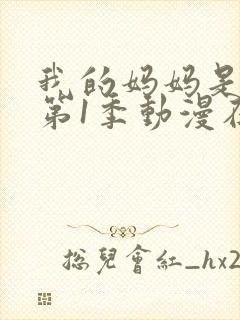 我的妈妈是
第1季動漫在
總兒會紅_hx2